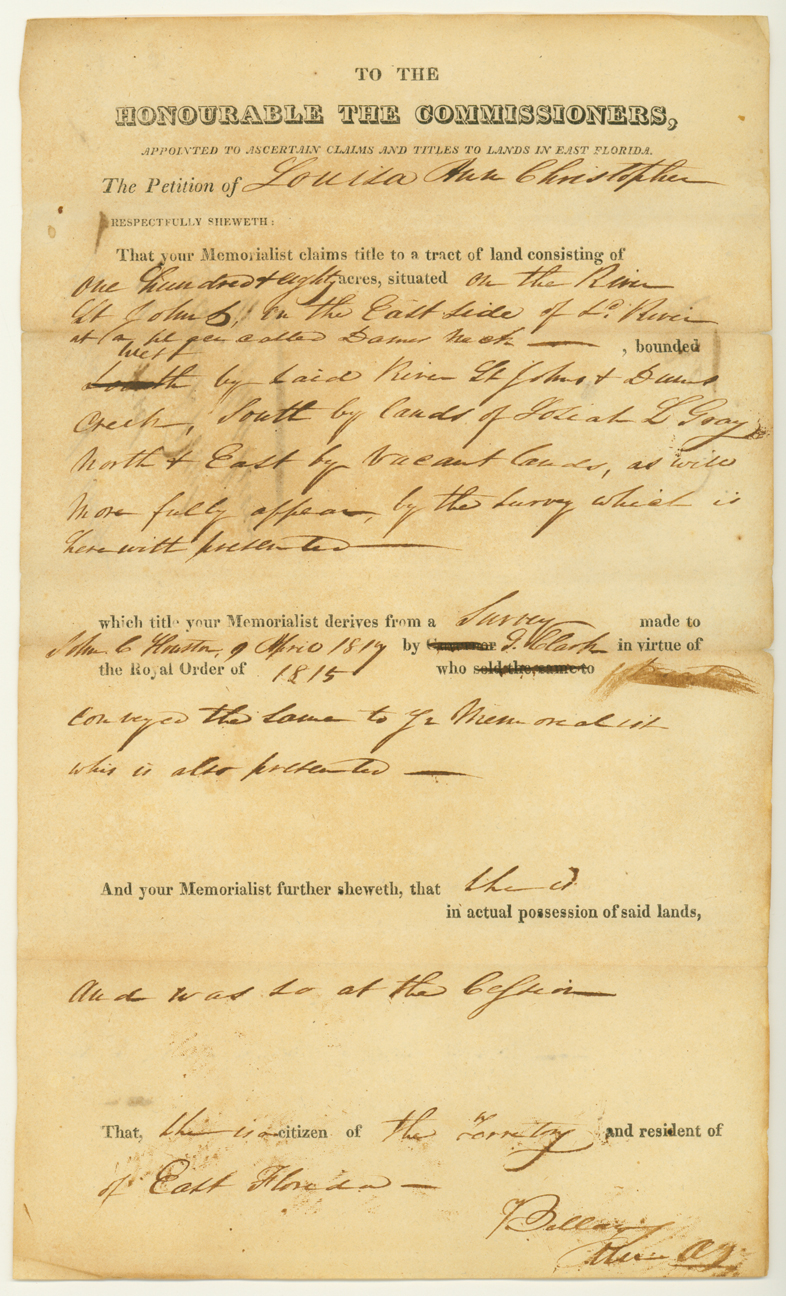 TO THE
HONOURABLE THE COMMISSIONERS,
APPOINTED TO ASCERTAIN CLAIMS AND TITLES TO LANDS IN EAST FLORIDA.
The Petition of Louisa Ann Christopher
RESPECTFULLY SHEWETH:
That your Memorialist claims title to a tract of land consisting of
one hundred & eighty acres, situated on the River
St Johns, on the East side of sd. River
at a place called Dames Neck , bounded
West
by said River St Johns & Dunns
Creek, South by lands of Josiah L Gray &
North & East by Vacant lands, as will
More fully appear, by the survey which is
herewith presented
which title your Memorialist derives from a Survey made to
John C Houston 9 April 1817 by Governor G. Clark in virtue of
the Royal Order of 1815 who sold the same to
conveyed the same to yr Memorialist
whis is also presented
And your Memorialist further sheweth, that she is
in actual possession of said lands,
And was so at the Cession
That, she is a citizen of the Territory and resident of
of East Florida
Bellamy
Atty